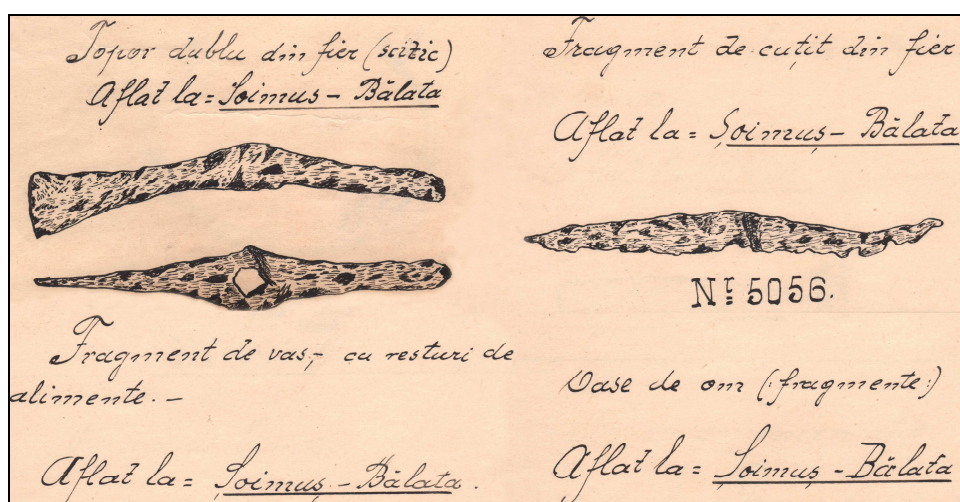 Topor dublu din fier (scitic)
Aflat la = Soimus – Bălata
Fragment de vas,- cu resturi de
alimente. –
Aflat la = Șoimuș – Bălata.
Fragment de cuțit din fier
Aflat la = Șoimuș – Bălata
Nr 5056.
Oase de om (:fragmente:)
Aflat la = Șoimuș – Bălata